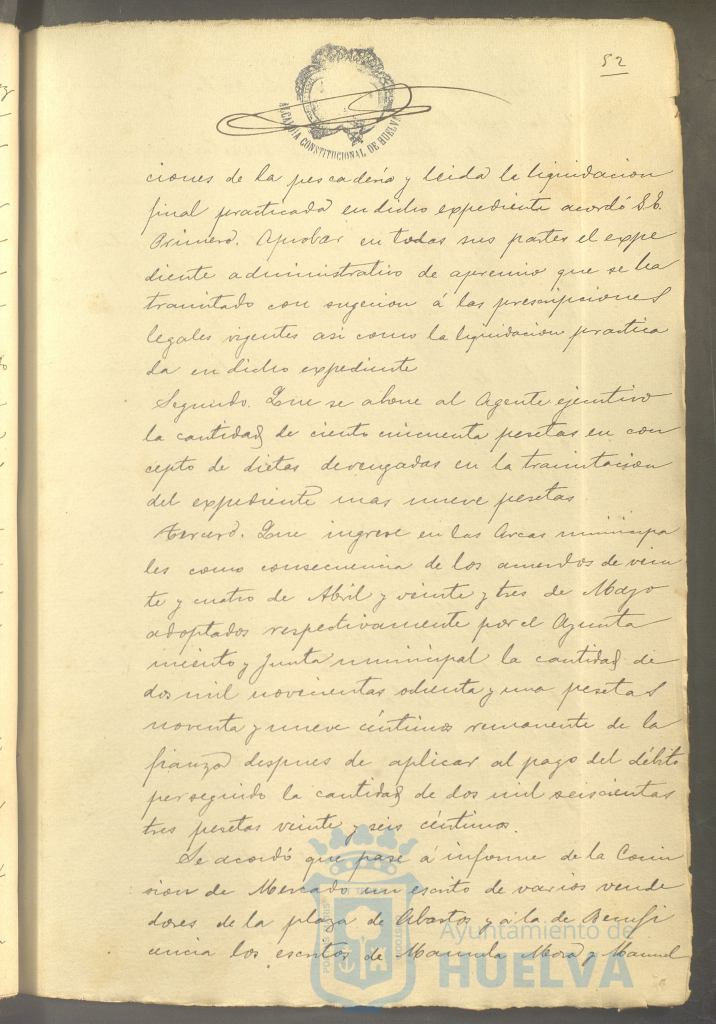 52
ALCALDIA CONSTITUCIONAL DE HUELVA
ciones de la pescadería y leida la liquidacion
final practicada en dicho expediente acordó S.E.
Primero. Aprobar en todas sus partes el expe
diente administrativo de apremio que se ha
tramitado con sugecion á las prescripciones
legales vigentes asi como la liquidacion practica
da en dicho expediente
Segundo. Que se abone al Agente ejecutivo
la cantidad de ciento cincuenta pesetas en con
cepto de dietas devengadas en la tramitacion
del expediente mas nueve pesetas
Tercero. Que ingrese en las Arcas municipa
les como consecuencia de los acuerdos de vein
te y cuatro de Abril y veinte y tres de Mayo
adoptados respectivamente por el Ayunta
miento y Junta municipal la cantidad de
dos mil novecientas ochenta y una pesetas
noventa y nueve céntimos remanente de la
fianza despues de aplicar al pago del débito
perseguido la cantidad de dos mil seiscientas
tres pesetas veinte y seis céntimos.
Se acordó que pase á informe de la Comi
sion de Mercado un escrito de varios vende
dores de la plaza de Abastos y á la de Benefi
cencia los escritos de Manuela Mora y Manuel
Ayuntamiento de
HUELVA